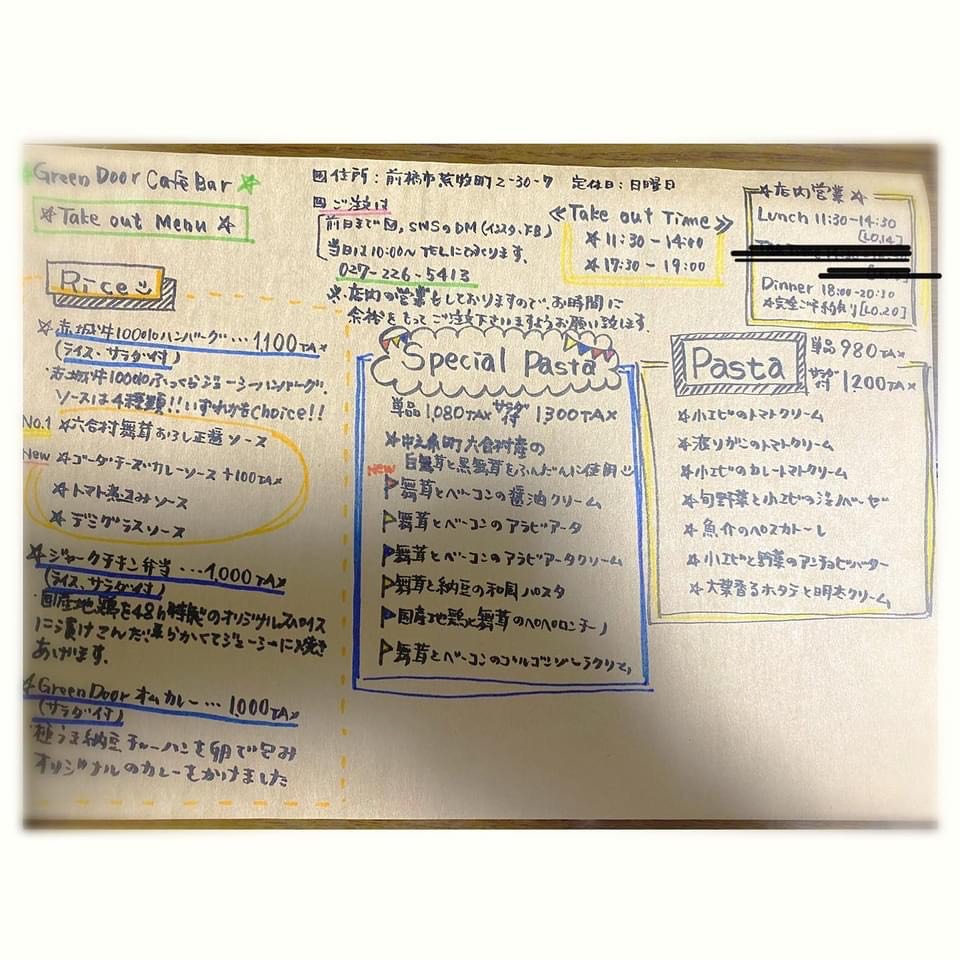 Green Door Cafe Bar
Take out Menu
住所：前橋市荒牧町2-30-7 定休日：日曜日
ご注文は
前日まで, SNSのDM(インスタ、FB)
当日は10:00〜TELにて
027-226-5413
※店内の営業もしておりますので、お時間に
余裕をもってご注文下さいますようお願い致します.
≪Take out Time≫
☆11:30-14:00
☆17:30-19:00
☆店内営業☆
Lunch 11:30-14:30
[LO.14]
Dinner 18:00-20:30
☆完全ご予約制[LO.20]
Rice
☆赤城牛100%ハンバーグ…1,100TAX
(ライス、サラダ付)
赤城牛100%ふっくらジューシーハンバーグ.
ソースは4種類!!いずれかをChoice!!
No.1 ☆六合村舞茸おろし正醤ソース
New ☆ゴーダチーズカレーソース+100TAX
☆トマト煮込みソース
☆デミグラスソース
☆ジャークチキン弁当…1,000TAX
(ライス、サラダ付)
国産地鶏を48h特製のオリジナルスパイス
に漬けこんだ、柔らかくてジューシーに焼き
あげます.
☆Green Door オムカレー…1,000TAX
(サラダ付)
極うま納豆チャーハンを卵で包み
オリジナルのカレーをかけました
Special Pasta
単品1,080TAX サラダ付 1300TAX
☆中之条町六合村産の
白舞茸と黒舞茸をふんだんに使用
New
舞茸とベーコンの醤油クリーム
舞茸とベーコンのアラビアータ
舞茸とベーコンのアラビアータクリーム
舞茸と納豆の和風パスタ
国産地鶏と舞茸のペペロンチーノ
舞茸とベーコンのゴルゴンゾーラクリーム
Pasta
単品980TAX
サラダ付 1200TAX
☆小エビのトマトクリーム
☆渡りガニのトマトクリーム
☆小エビのカレートマトクリーム
☆旬野菜と小エビのジェノベーゼ
☆魚介のペスカトーレ
☆小エビと野菜のアンチョビバター
☆大葉香るホタテと明太クリーム